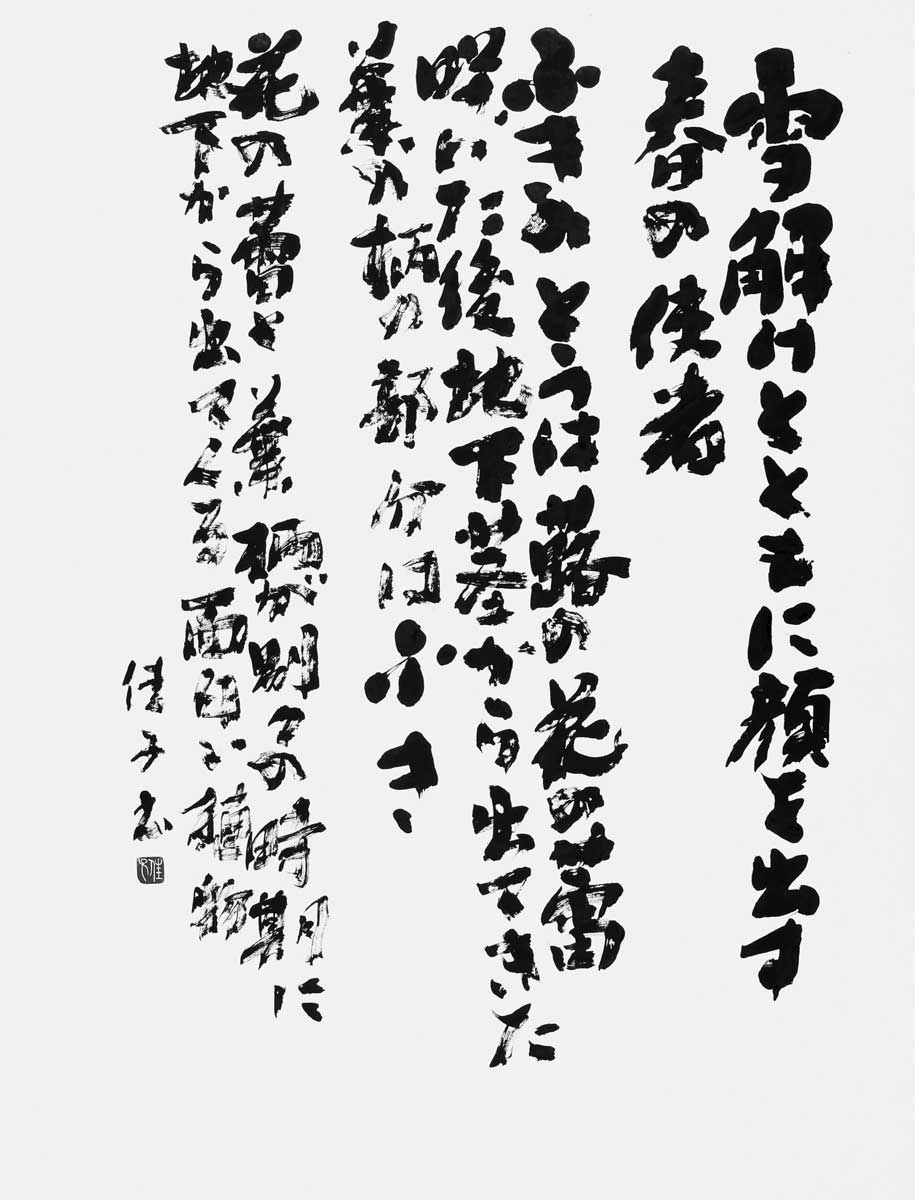 雪解けとともに顔を出す
春の使者
ふきのとうは蕗の花の蕾
咲いた後地下茎から出てきた
葉の柄の部分はふき
花の蕾と葉柄が別々の時期に
地下から出てくる面白い植物
佳子書